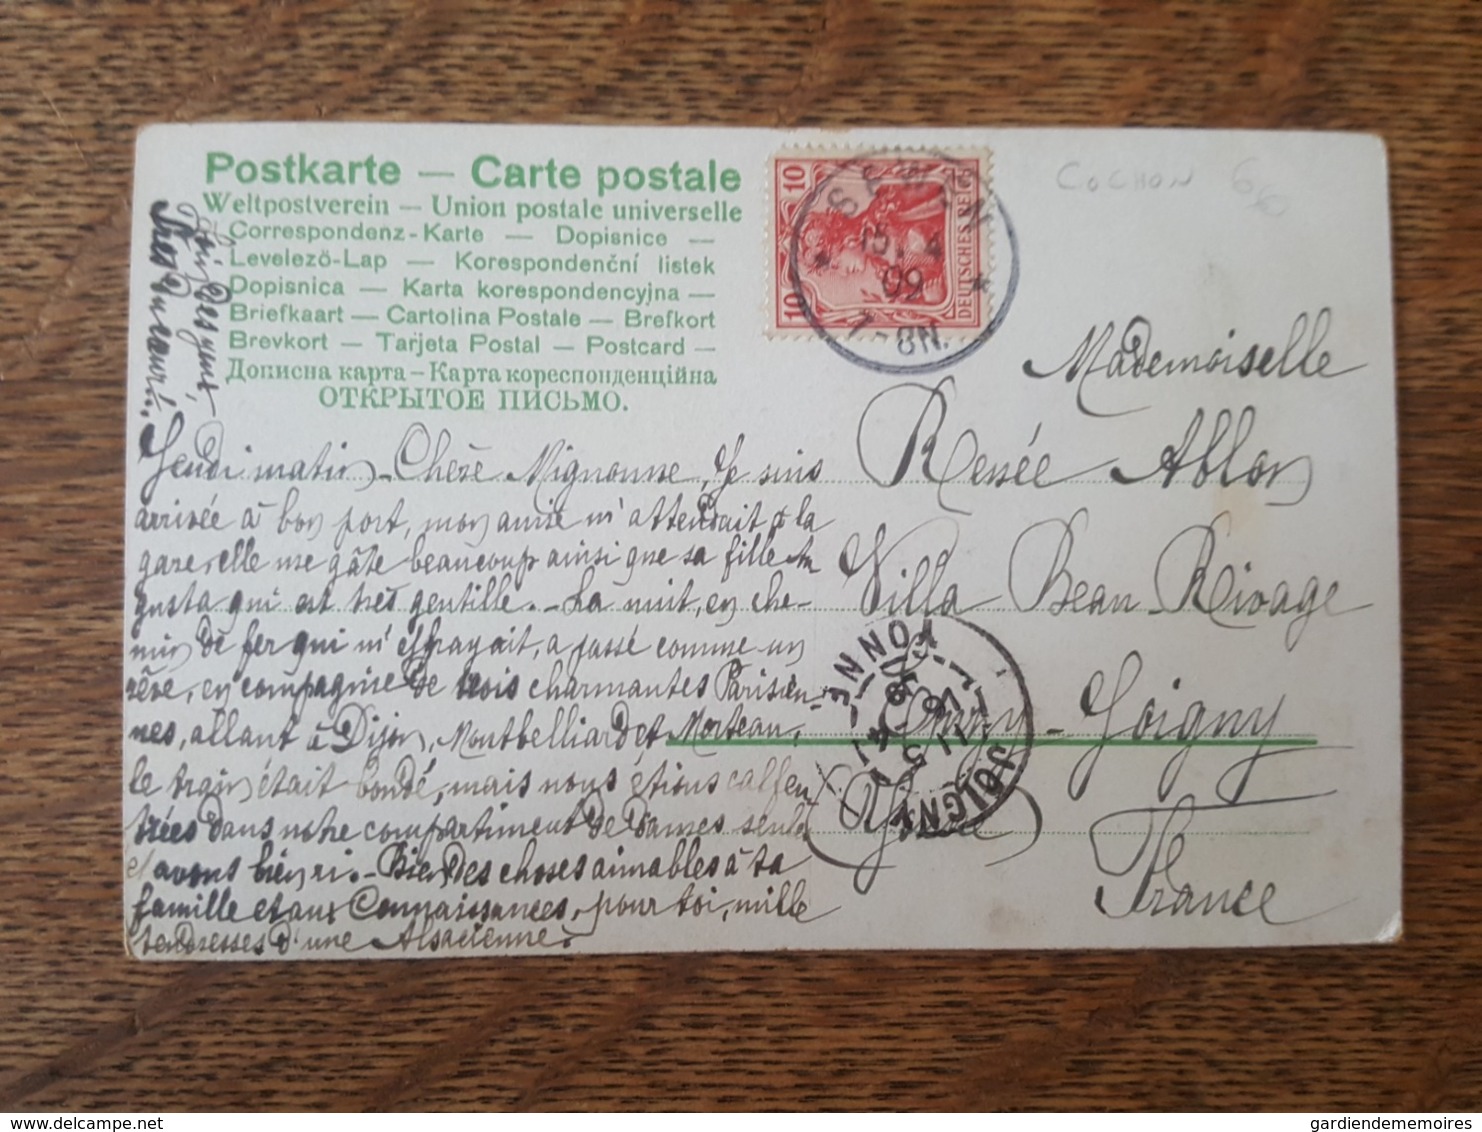 Postkarte — Carte postale
Weltpostverein — Union postale universelle
Correspondenz-Karte — Dopisnice —
Levelező-Lap — Korespondenční listek
Dopisnica — Karta korespondencyjna —
Briefkaart — Cartolina Postale — Brefkort
Brevkort — Tarjeta Postal — Postcard —
Дописна карта — Карта кореспонденційна
ОТКРЫТОЕ ПИСЬМО.
10 10
DEUTSCHES REICH
SEWEN
15. 4
09
7-8N.
COCHON
Mademoiselle
Renée Ablon
Villa Beau-Rivage
Joigny
(Yonne)
France
JOIGNY
YONNE
Jeudi matin - Chère Mignonne, Je suis
arrivée à bon port, mon amie m'attendait à la
gare, elle me gâte beaucoup ainsi que sa fille
qui est très gentille. - La nuit, en che-
min de fer qui m'effrayait, a passé comme un
rêve, en compagnie de trois charmantes Parisien-
nes, allant à Dijon, Montbelliard et Morteau,
le train était bondé, mais nous étions calfeu
trées dans notre compartiment de Dames seules
et avons bien ri. - Bien des choses aimables à ta
famille et aux Connaissances, pour toi, mille
tendresses d'une Alsacienne.